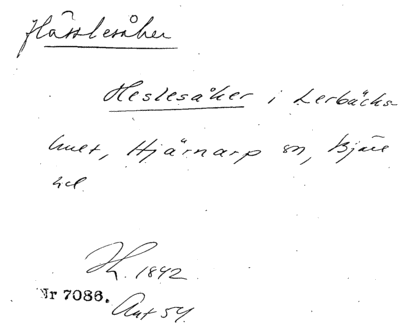 Hässlesåker
Heslesåker i Lerbäcks-
huet, Hjärnarp sn, Bjäre
hd
H. 1842
Nr 7086.
Ant 54.